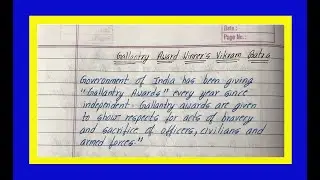 Date :
Page No. :
Gallantry Award Winner's Vikram Batra
Government of India has been giving
"Gallantry Awards" every year since
independent. Gallantry awards are given
to show respects for acts of bravery
and sacrifice of officers, civilians and
armed forces."